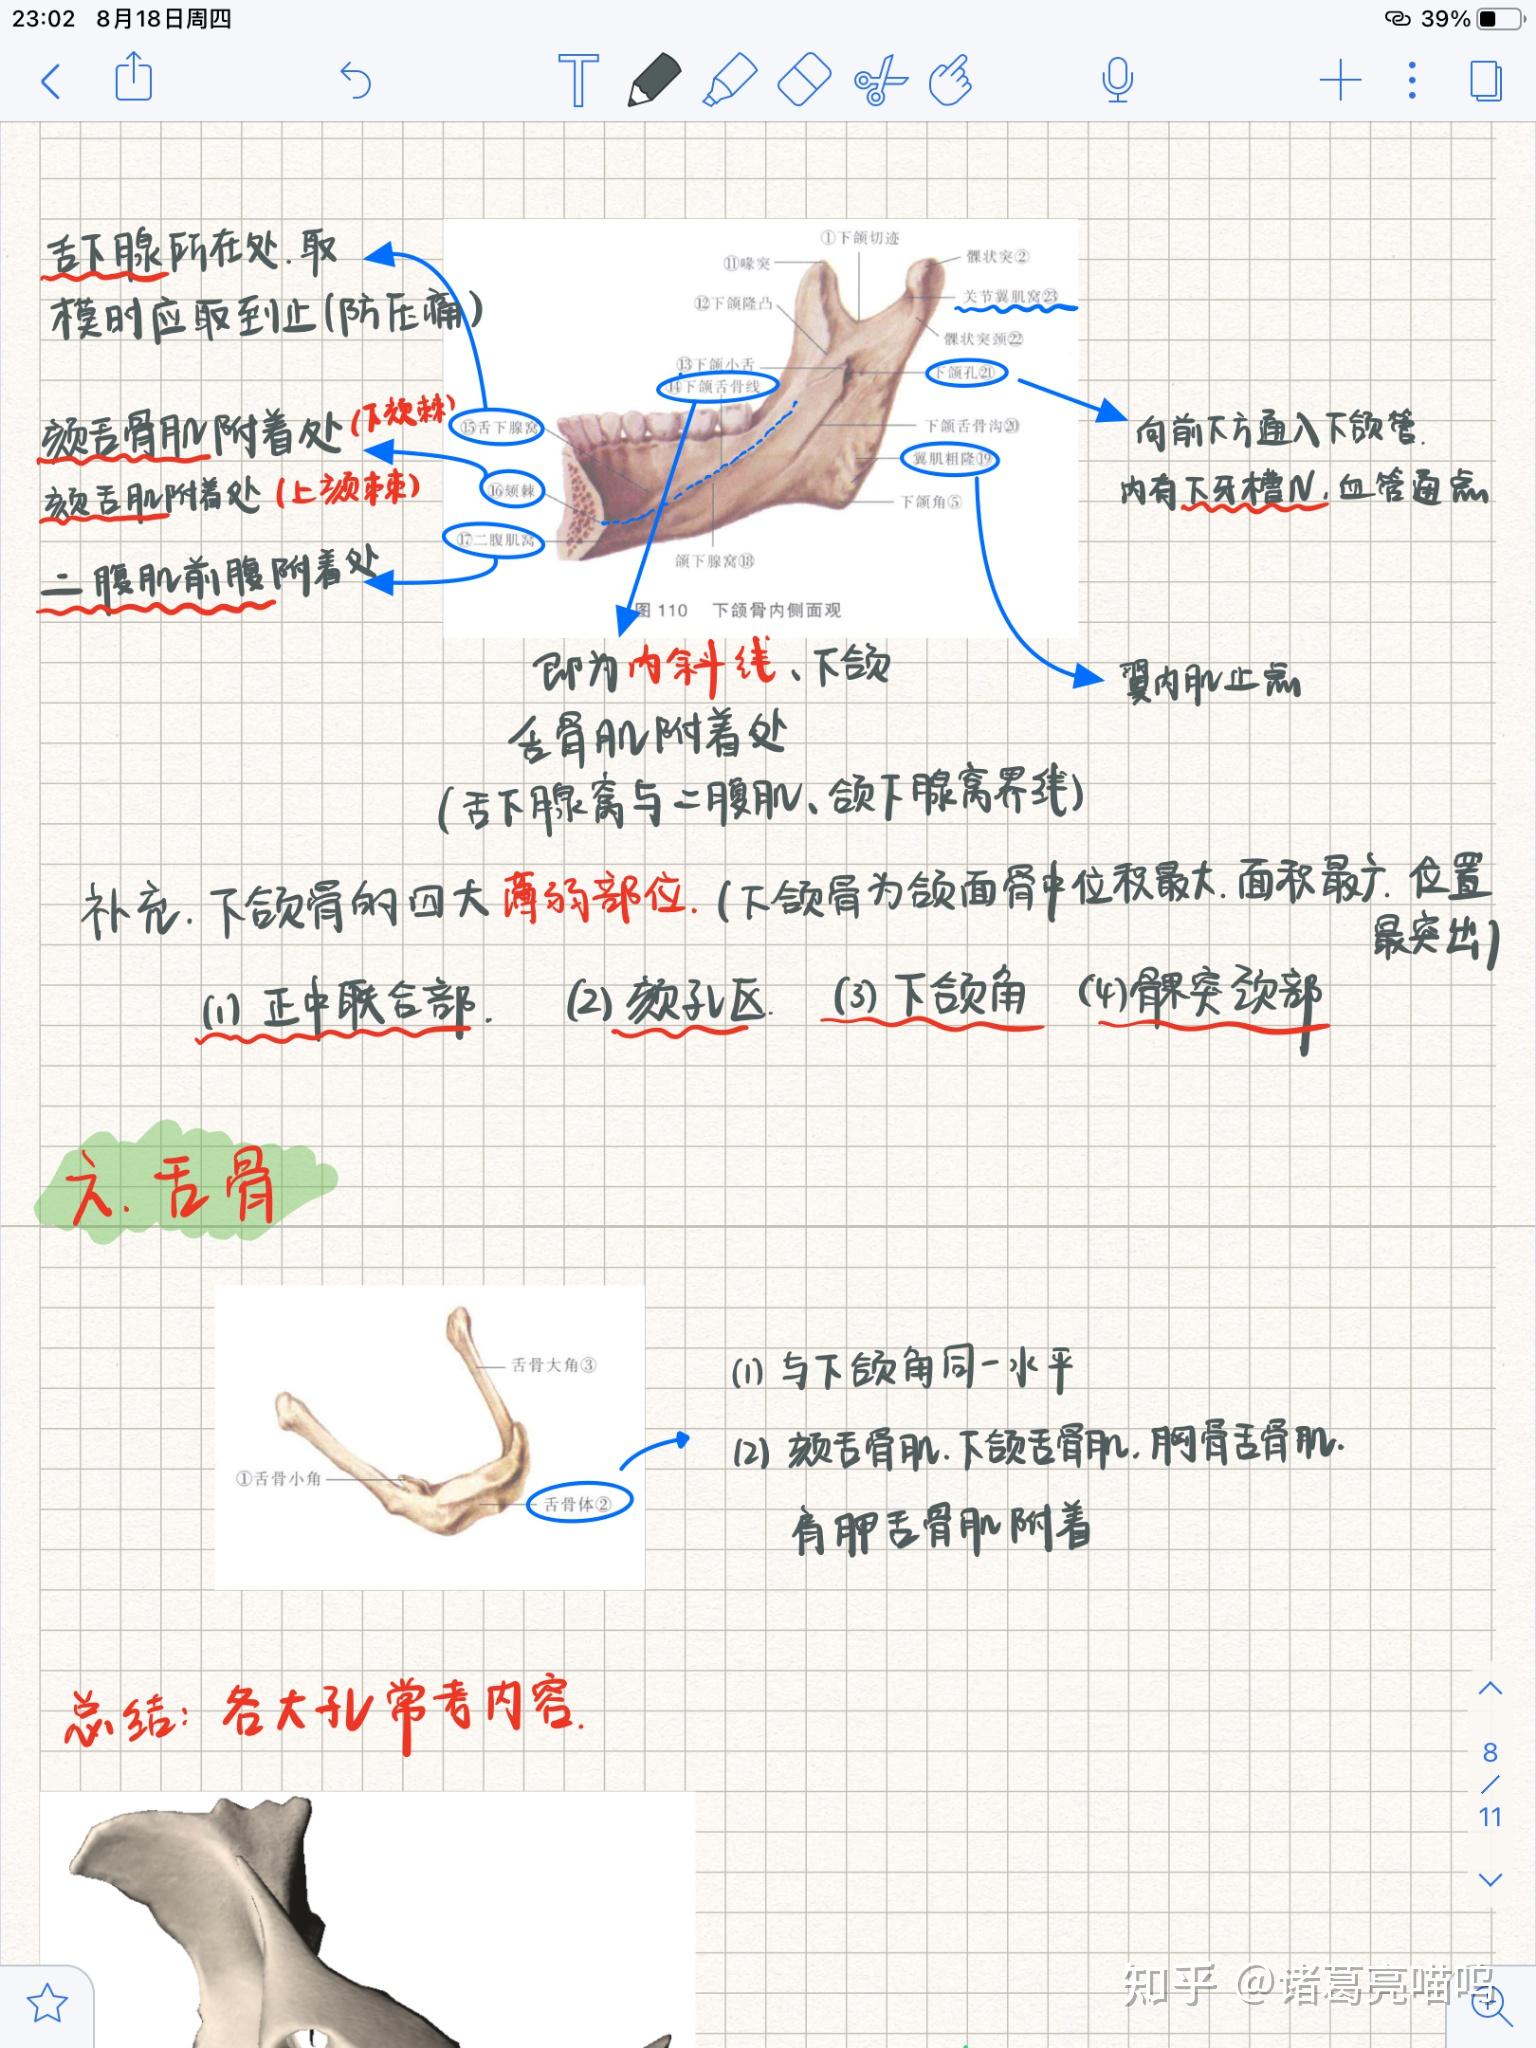 23:02 8月18日周四
39%
舌下腺所在处.取
模时应取到止(防压痛)
颏舌骨肌附着处(下颏棘)
颏舌肌附着处(上颏棘)
二腹肌前腹附着处
①下颌切迹
⑪喙突
髁状突②
⑫下颌隆凸
关节翼肌窝㉓
髁状突颈㉒
⑬下颌小舌
⑭下颌舌骨线
下颌孔㉑
⑮舌下腺窝
下颌舌骨沟⑳
翼肌粗隆⑲
⑯颏棘
下颌角⑤
⑰二腹肌窝
颌下腺窝⑱
图 110 下颌骨内侧面观
向前下方通入下颌管.
内有下牙槽N.血管通点
翼内肌止点
即为内斜线、下颌
舌骨肌附着处
(舌下腺窝与二腹肌、颌下腺窝界线)
补充.下颌骨的四大薄弱部位.(下颌骨为颌面骨中位积最大.面积最广.位置
最突出)
(1)正中联合部. (2)颏孔区. (3)下颌角 (4)髁突颈部
六.舌骨
舌骨大角③
①舌骨小角
舌骨体②
(1)与下颌角同一水平
(2)颏舌骨肌.下颌舌骨肌.胸骨舌骨肌.
肩胛舌骨肌附着
总结:各大孔常考内容.
8
/
11
知乎 @诸葛亮喵呜